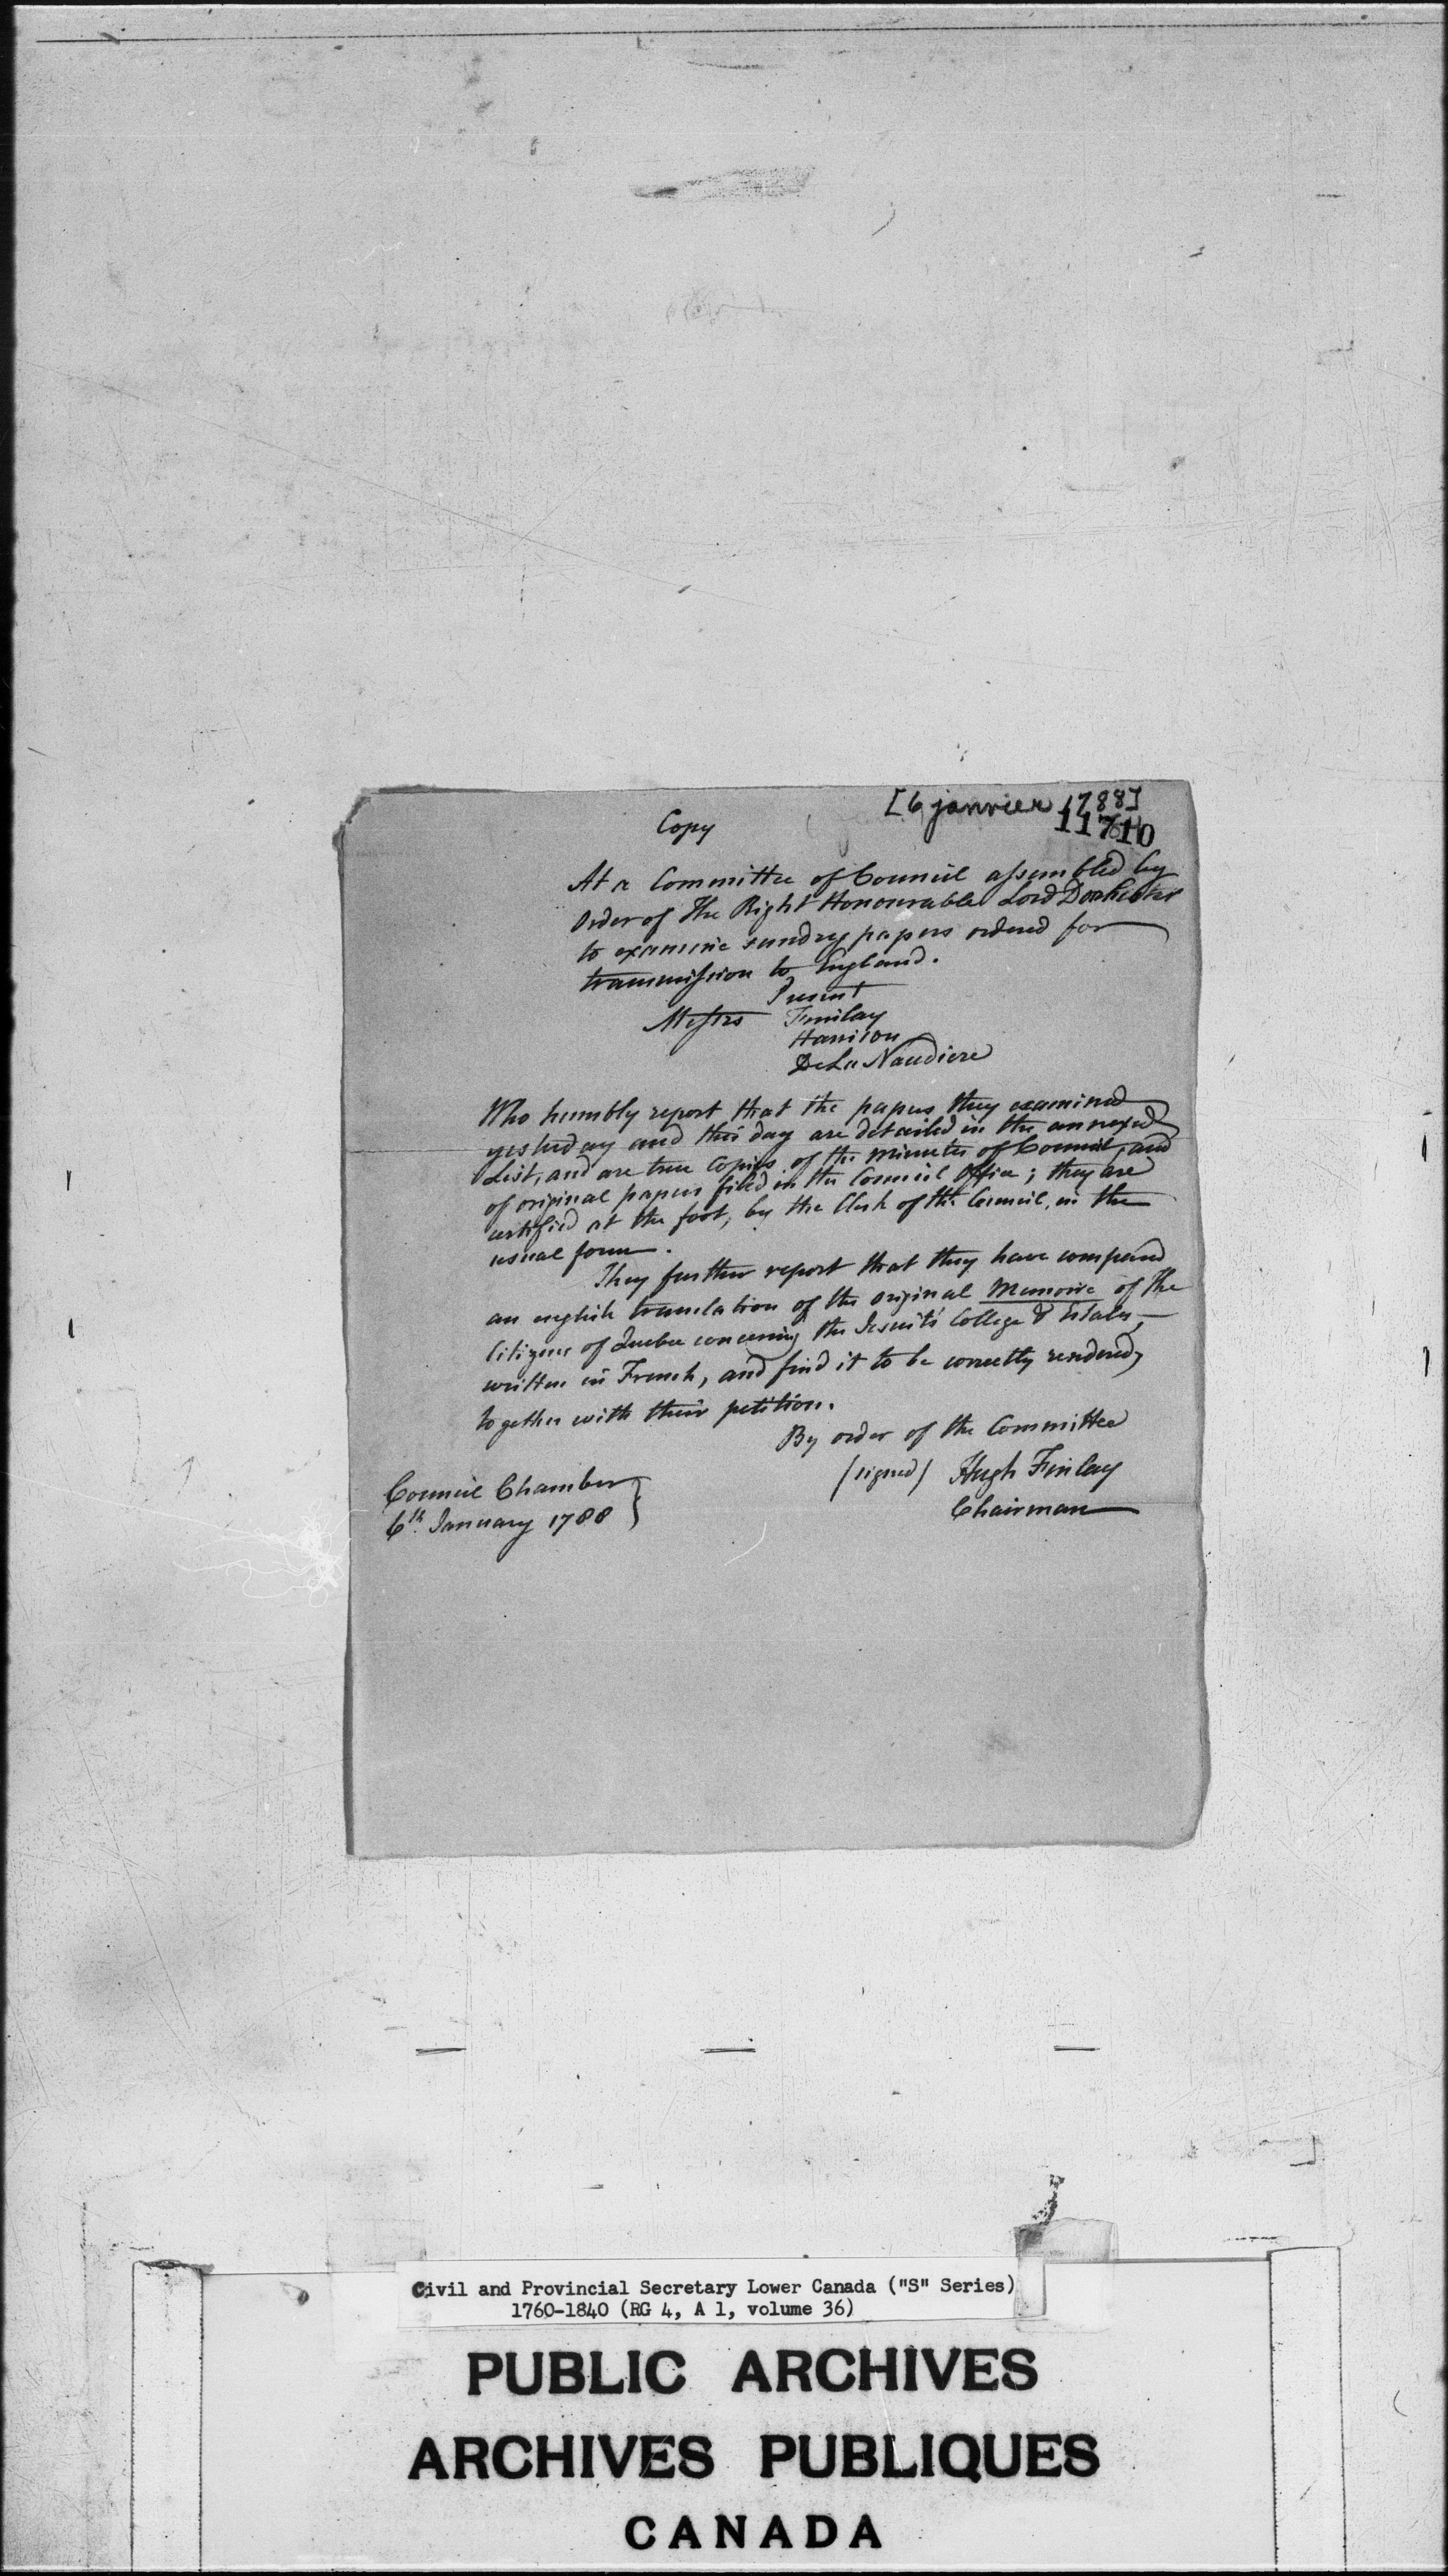 [6 janvier 1788]
11710
Copy
At a Committee of Council assembled by
Order of The Right Honourable Lord Dorchester
to examine sundry papers ordered for
transmission to England.
Present
Messrs Finlay
Harrison
DeLa Naudiere
Who humbly report that the papers they examined
yesterday and this day are detailed in the annexed
List, and are true Copies of the Minutes of Council, and
of original papers filed in the Council Office; they are
certified at the foot, by the Clerk of the Council, in the
usual form.
They further report that they have compared
an english translation of the original Memoire of the
Citizens of Quebec concerning the Jesuits' College & Estates,
written in French, and find it to be correctly rendered,
together with their petition.
By order of the Committee
(signed) Hugh Finlay
Chairman
Council Chamber
6th January 1788
Civil and Provincial Secretary Lower Canada ("S" Series)
1760-1840 (RG 4, A 1, volume 36)
PUBLIC ARCHIVES
ARCHIVES PUBLIQUES
CANADA